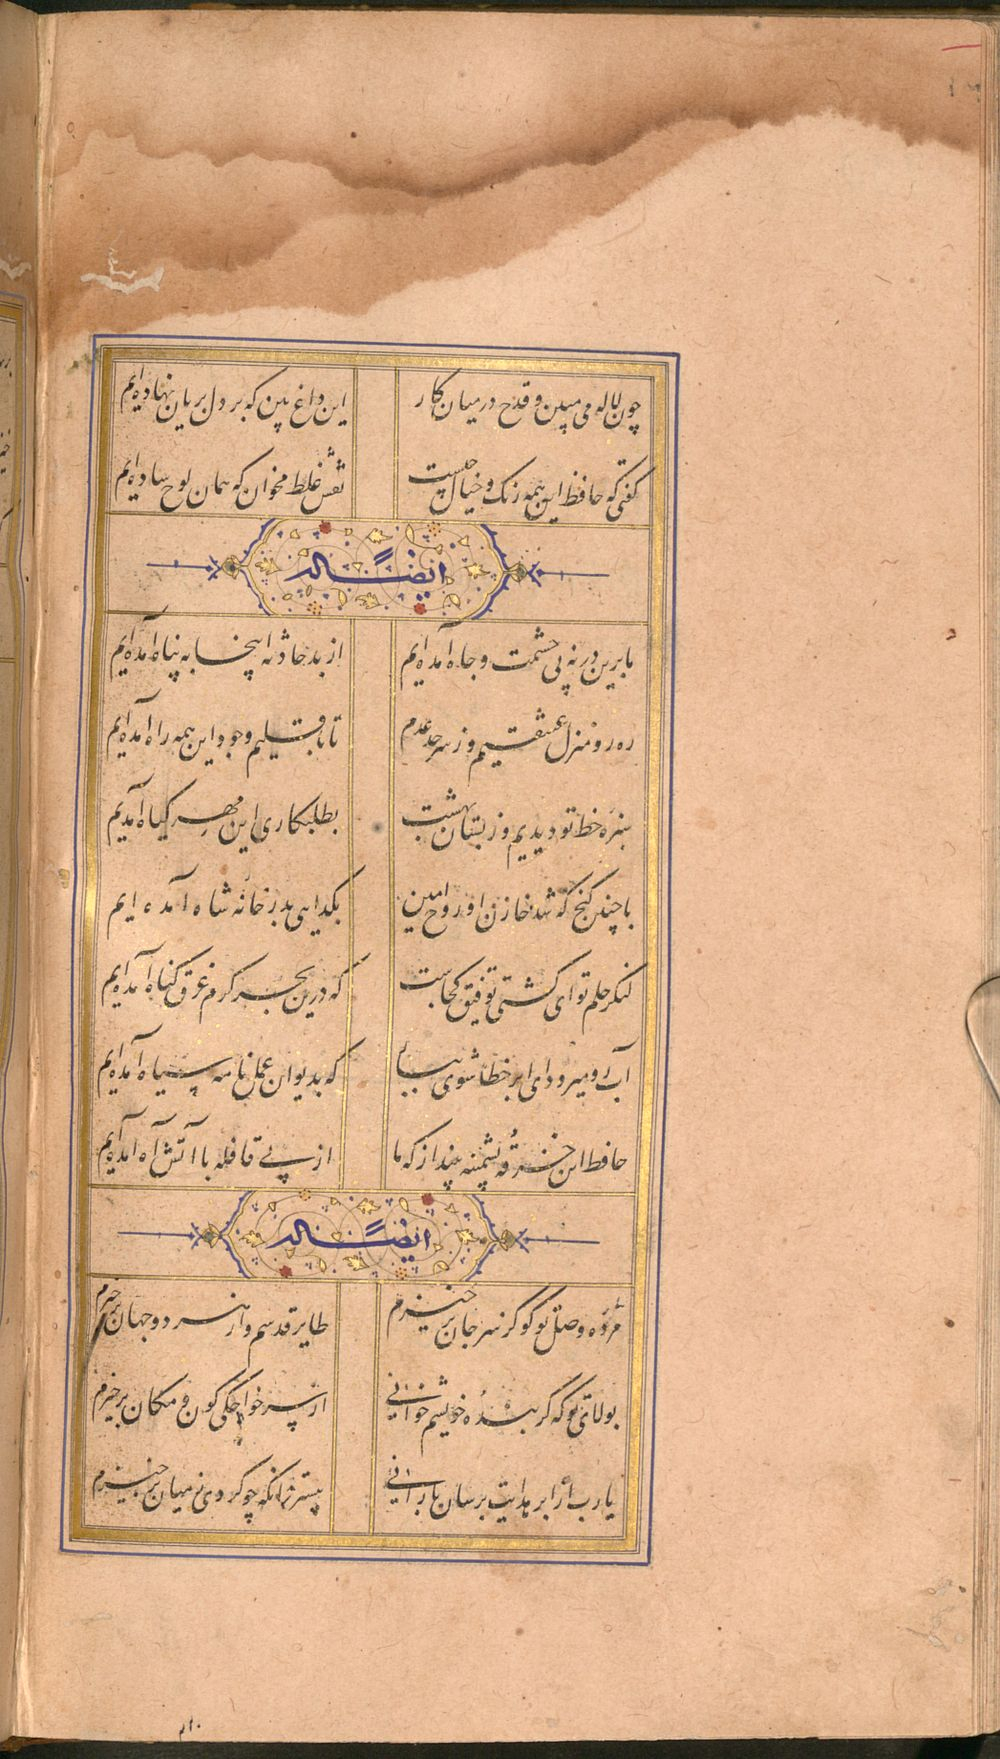 چون لاله می مبین و قدح در میان کار این داغ بین که بر دل بریان نهاده‌ایم
گفتی که حافظ این همه رنگ و خیال چیست نقش غلط مخوان که همان لوح ساده‌ایم
ایضاً له
ما برین در نه پی حشمت و جاه آمده‌ایم از بد حادثه اینجا به پناه آمده‌ایم
ره رو منزل عشقیم و ز سرحد عدم تا باقلیم وجود این همه راه آمده‌ایم
سبزه خط تو دیدیم و ز بستان بهشت بطلبکاری این مهر گیاه آمده‌ایم
با چنین گنج که شد خازن او روح امین بگدایی بدر خانه شاه آمده ایم
لنگر حلم تو ای کشتی توفیق کجاست که درین بحر کرم غرق گناه آمده‌ایم
آب رو میرود ای ابر خطاشوی ببار که بدیوان عمل نامه سیاه آمده‌ایم
حافظ این خرقه پشمینه بینداز که ما از پی قافله با آتش آه آمده‌ایم
ایضاً له
مژده وصل تو کو کز سر جان برخیزم طایر قدسم و از هر دو جهان برخیزم
بولای تو که گر بنده خویشم خوانی از سر خواجگی کون و مکان برخیزم
یا رب از ابر هدایت برسان بارانی پیشتر زانکه چو گردی ز میان برخیزم